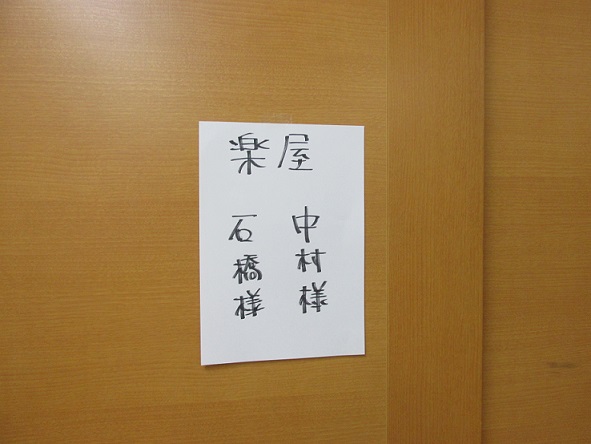 楽屋
中村様
石橋様